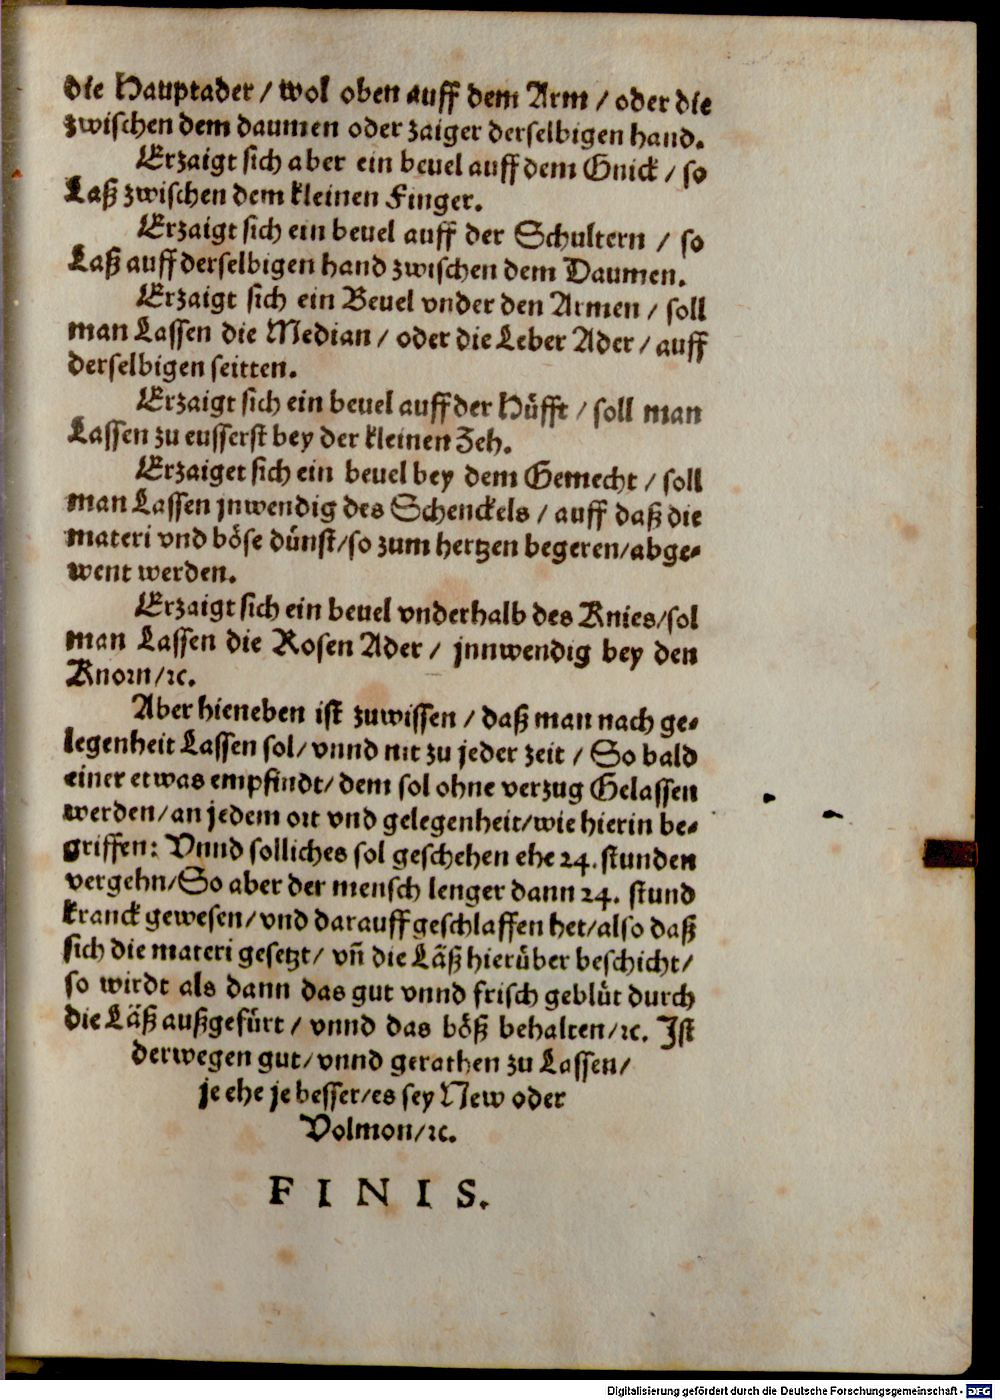 die Hauptader / wol oben auff dem Arm / oder die
zwischen dem daumen oder zaiger derselbigen hand.
Erzaigt sich aber ein beuel auff dem Gnick / so
Laß zwischen dem kleinen Finger.
Erzaigt sich ein beuel auff der Schultern / so
Laß auff derselbigen hand zwischen dem Daumen.
Erzaigt sich ein Beuel vnder den Armen / soll
man Lassen die Median / oder die Leber Ader / auff
derselbigen seitten.
Erzaigt sich ein beuel auff der Hüfft / soll man
Lassen zu eusserst bey der kleinen Zeh.
Erzaiget sich ein beuel bey dem Gemecht / soll
man Lassen jnwendig des Schenckels / auff daß die
materi vnd böse dünst/so zum hertzen begeren/abge-
went werden.
Erzaigt sich ein beuel vnderhalb des Knies/sol
man Lassen die Rosen Ader / jnnwendig bey den
Knorn/ꝛc.
Aber hieneben ist zuwissen / daß man nach ge-
legenheit Lassen sol/ vnnd nit zu jeder zeit / So bald
einer etwas empfindt/ dem sol ohne verzug Gelassen
werden/an jedem ort vnd gelegenheit/wie hierin be-
griffen: Vnnd solliches sol geschehen ehe 24. stunden
vergehn/So aber der mensch lenger dann 24. stund
kranck gewesen/vnd darauff geschlaffen het/also daß
sich die materi gesetzt/ vn̄ die Läß hierüber beschicht/
so wirdt als dann das gut vnnd frisch geblüt durch
die Läß außgefürt / vnnd das böß behalten/ꝛc. Ist
derwegen gut/vnnd gerathen zu Lassen/
je ehe je besser/es sey New oder
Volmon/ꝛc.
FINIS.
Digitalisierung gefördert durch die Deutsche Forschungsgemeinschaft - DFG